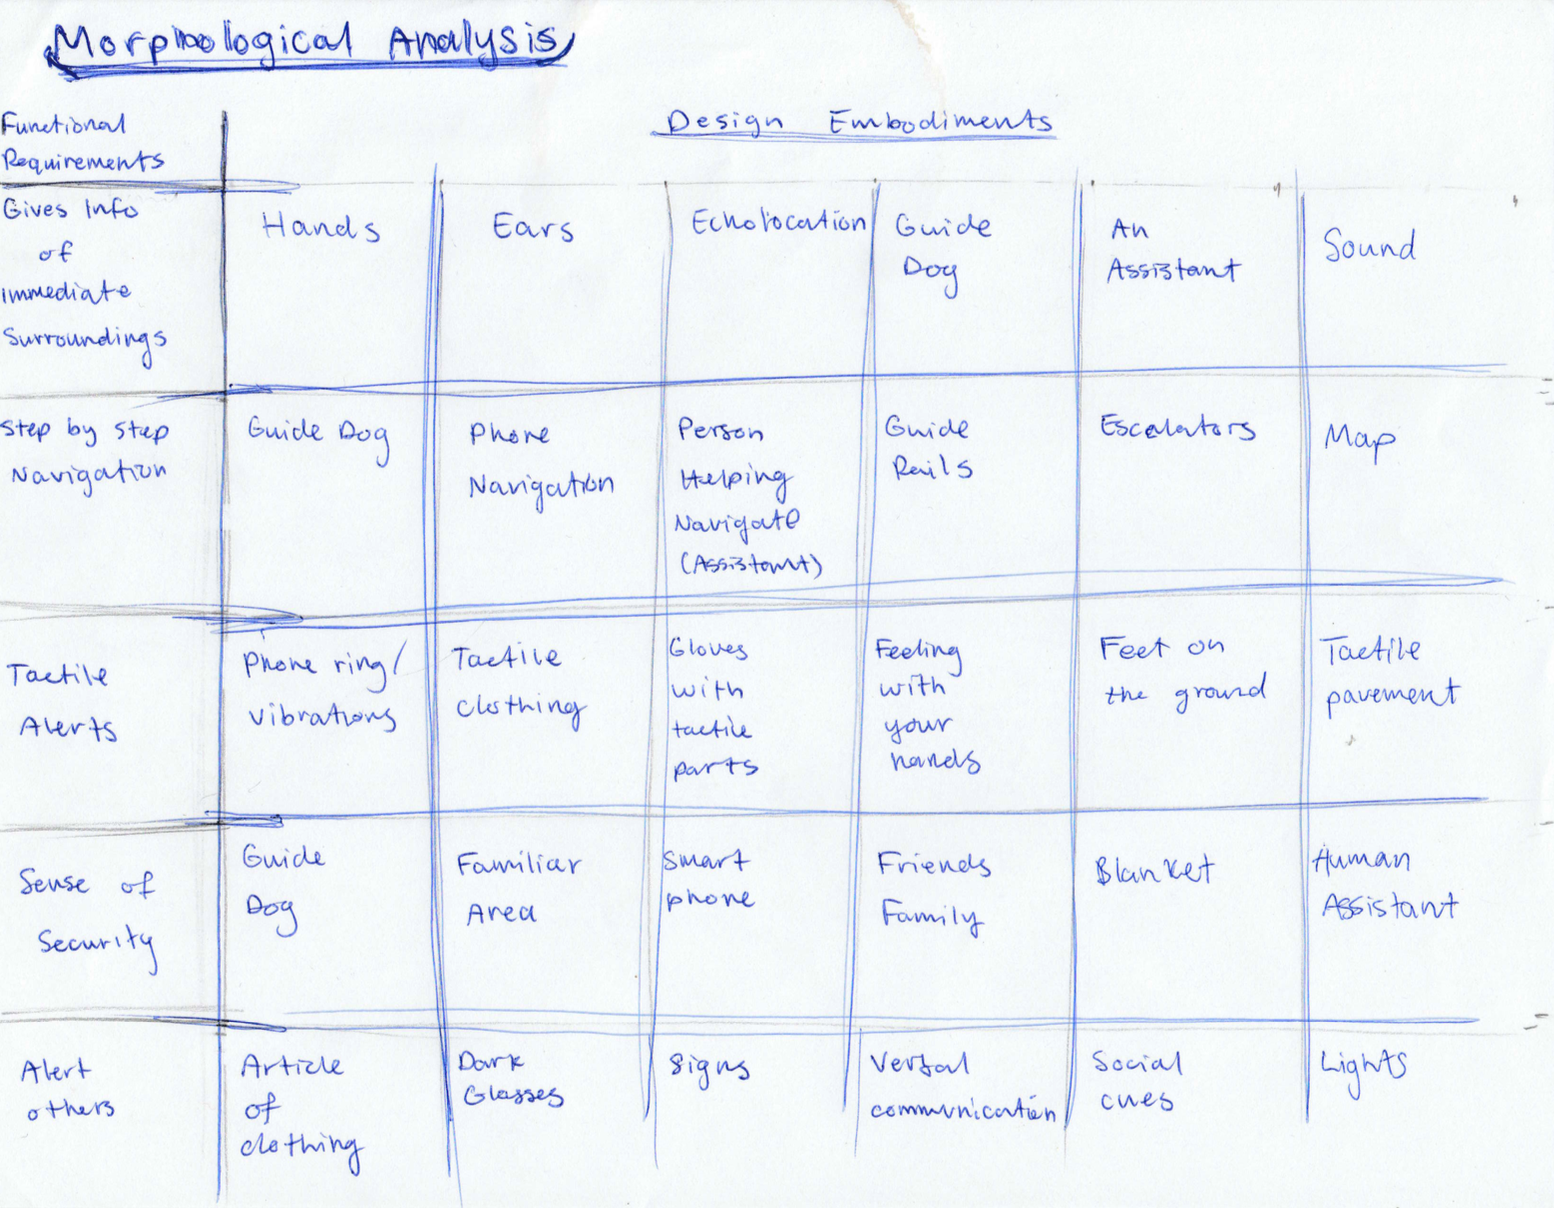 Morphological Analysis
Functional
Requirements
Design Embodiments
Gives Info
of
immediate
surroundings
Hands
Ears
Echolocation
Guide
Dog
An
Assistant
Sound
Step by step
Navigation
Guide Dog
Phone
Navigation
Person
Helping
Navigate
(Assistant)
Guide
Rails
Escalators
Map
Tactile
Alerts
Phone ring/
vibrations
Tactile
clothing
Gloves
with
tactile
parts
Feeling
with
your
hands
Feet on
the ground
Tactile
pavement
Sense of
Security
Guide
Dog
Familiar
Area
Smart
phone
Friends
Family
Blanket
Human
Assistant
Alert
others
Article
of
clothing
Dark
Glasses
Signs
Verbal
communication
Social
cues
Lights